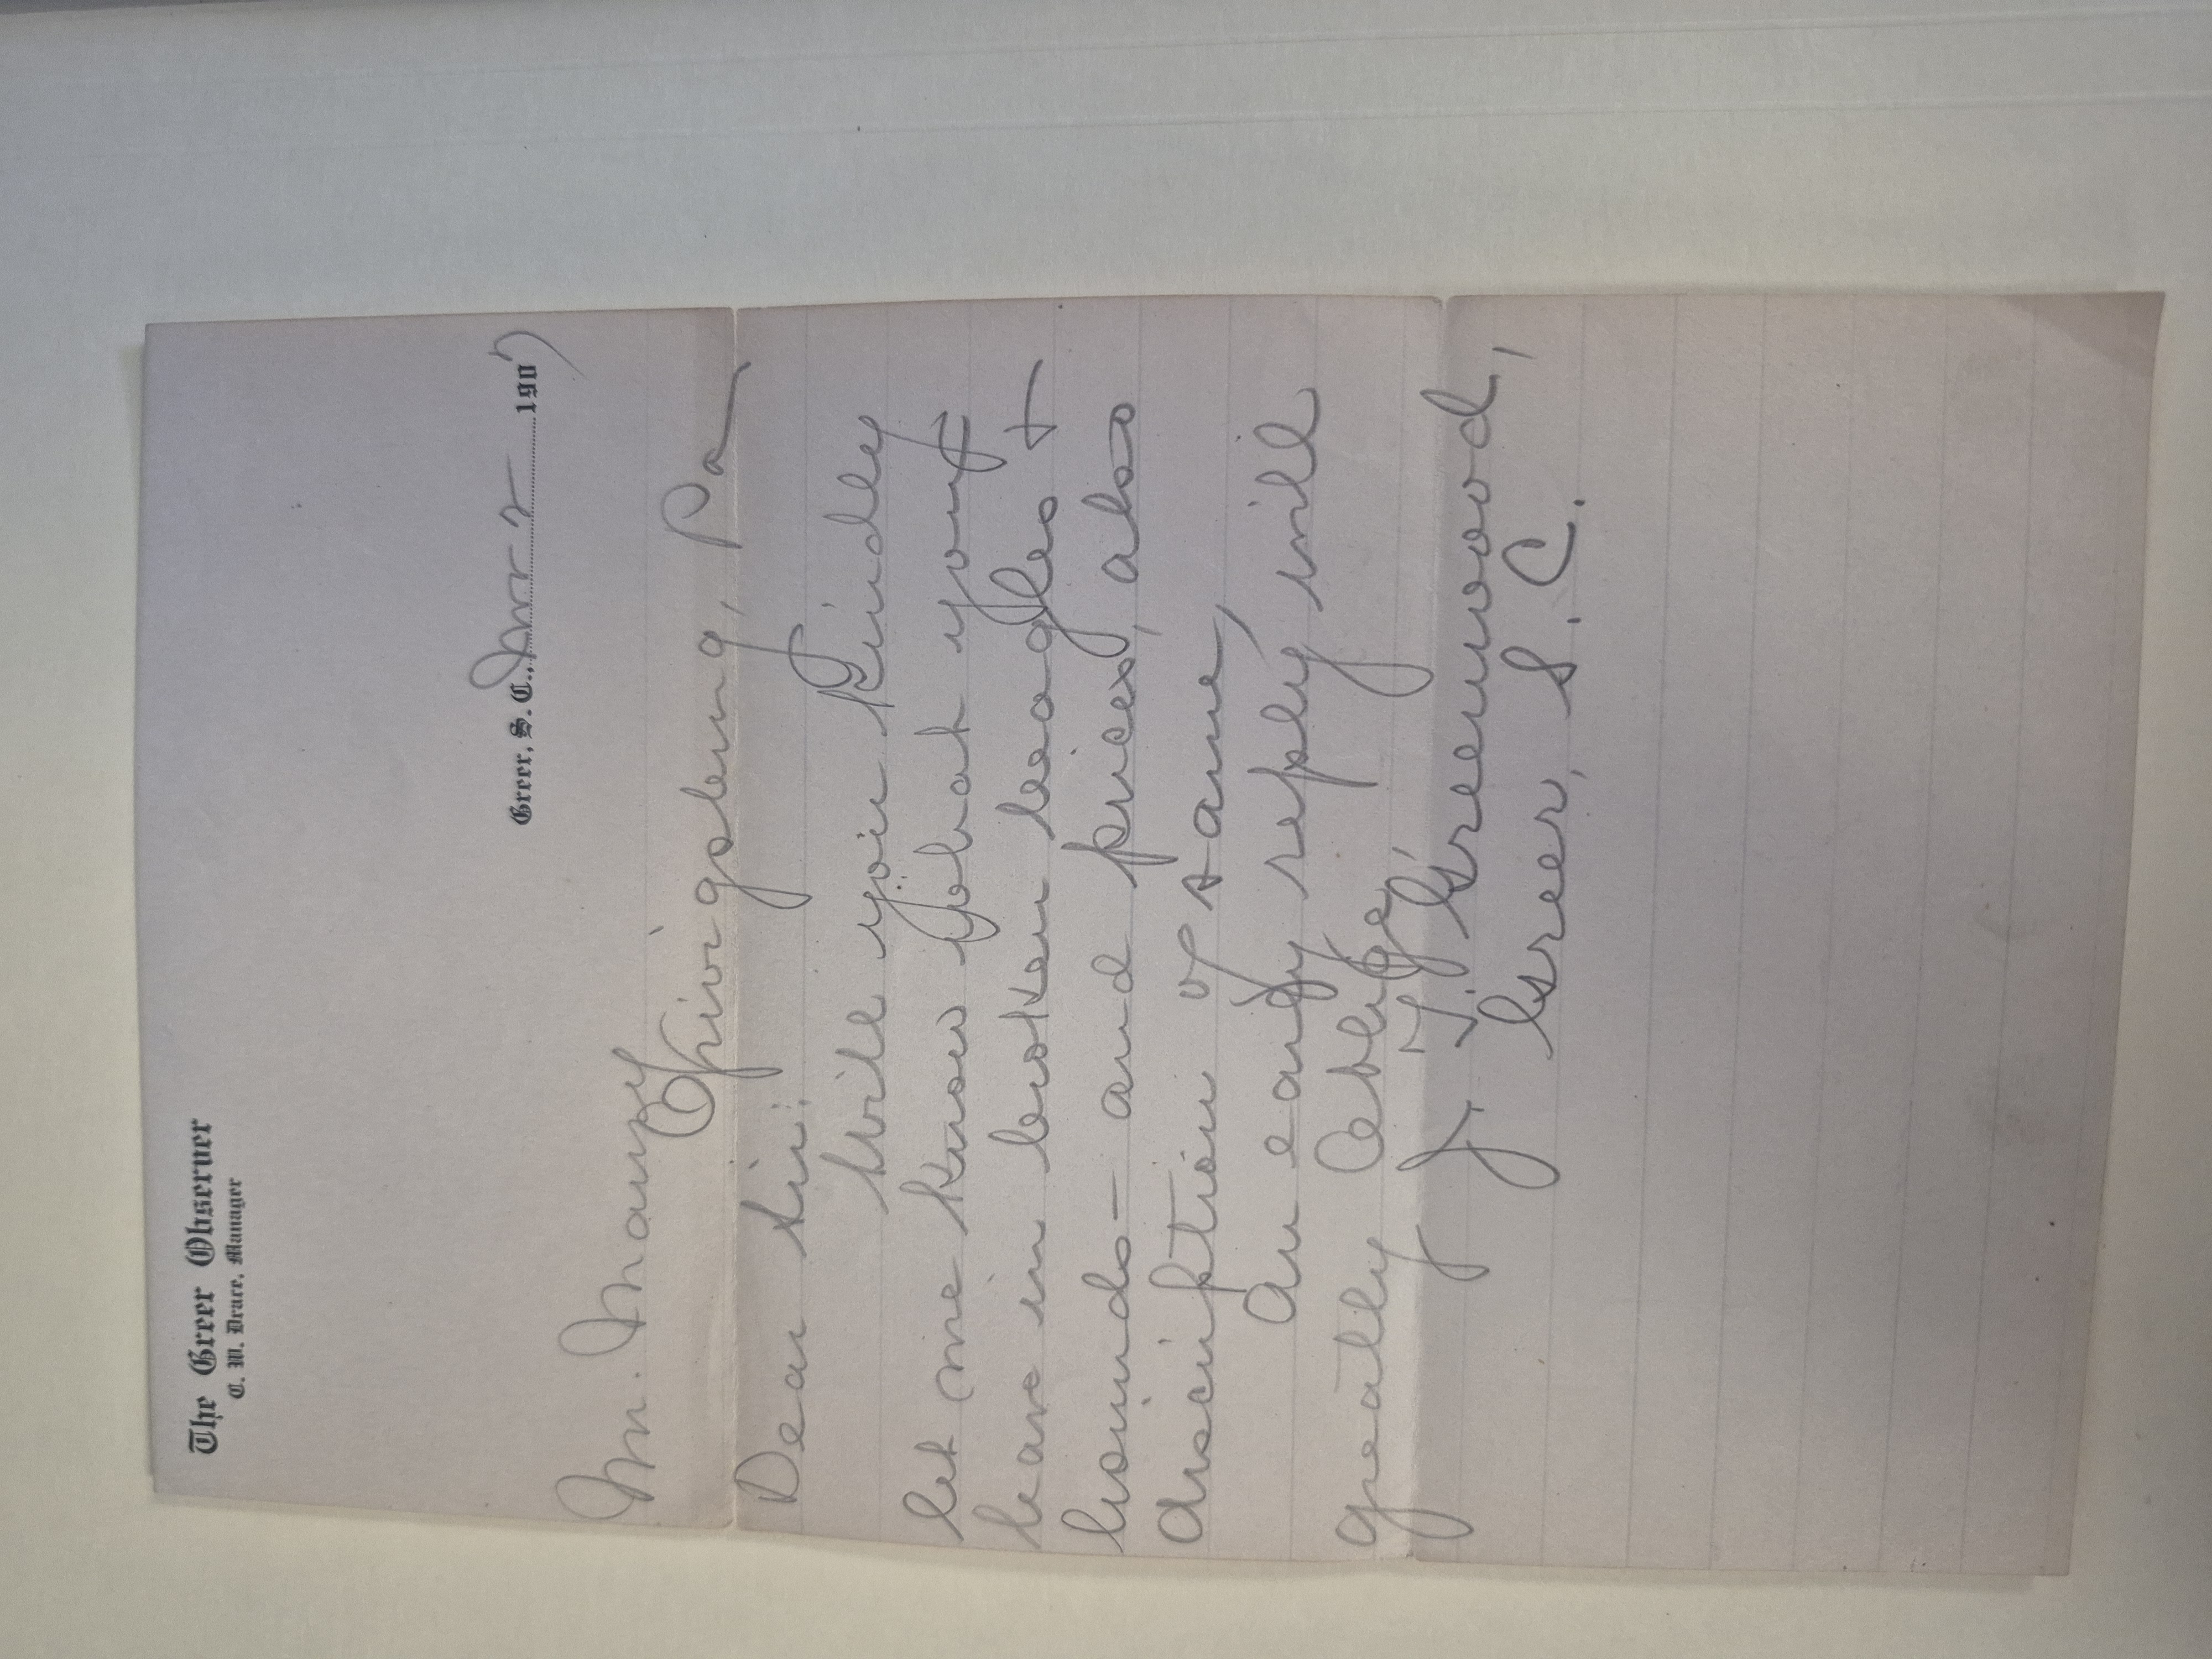 The Greer Observer
C. W. Drace, Manager
Greer, S. C., Nov 2 1907
Mr. Maury
Livingsburg, Pa
Dear Sir:
Will you kindly
let me know what you
have in broken beagles +
hounds - and prices, also
discription of same,
An early reply will
greatly oblige,
J. T. Greenwood,
Greer, S. C.